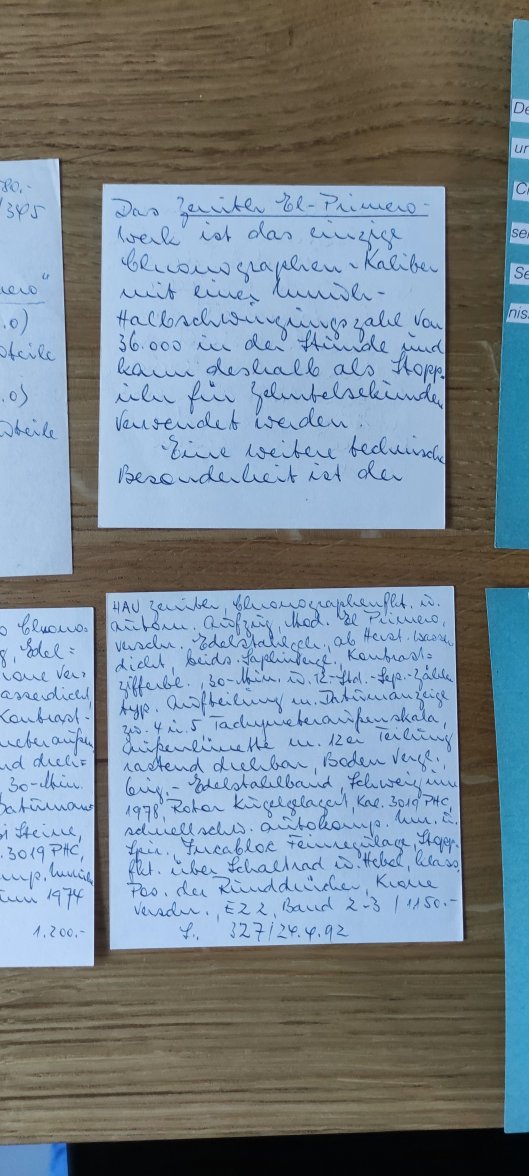 Das Zenith El-Primero-
werk ist das einzige
Chronographen-Kaliber
mit einer Unruh-
Halbschwingungszahl von
36.000 in der Stunde und
kann deshalb als Stopp-
uhr für Zehntelsekunden
verwendet werden.
Eine weitere technische
Besonderheit ist der
HAU Zenith, Chronographenfkt. u.
autom. Aufzug, Mod. El Primero,
verschr. Edelstahlgeh., ab Herst. wasser
dicht, beids. Kontrast=
zifferbl. 30-Min. u. 12-Std.-Sep.-Zähler
typ. Aufteilung m. Datumanzeige
zw. 4 u. 5 Tachymeteraußenskala,
Außenlünette m. 12er Teilung
rastend drehbar, Boden vergl.,
Orig.- Edelstahlband, Schweiz um
1978, Rotor kugelgelagert, Kal. 3019 PHC,
schnellschw. autokomp. Unr. u.
Spir. Incabloc Feinregulage, Stopp-
fkt. über Schaltrad u. Hebel, klass.
Pos. der Runddrücker, Krone
verschr., EZ 2, Band 2-3 / 1150.-
327/24.4.92
80.-
/345
mero"
.0)
teile
.0)
teile
Chrono=
Edel=
asserdicht,
Kontrast-
meteraußen
nd dreh=
30-Min.
Datuman=
Steine,
3019 PHC,
mp. Unruh
um 1974
1.200.-
De
ur
C
se
Se
nis